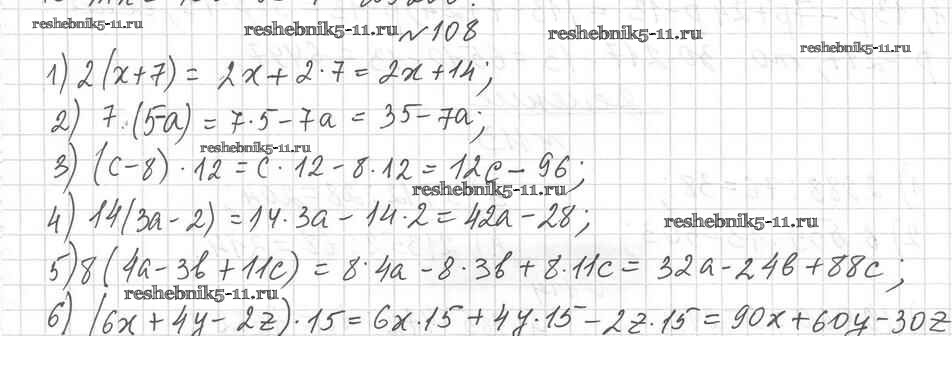 reshebnik5-11.ru
reshebnik5-11.ru № 108 reshebnik5-11.ru
reshebnik5-11.ru
1) 2(x+7) = 2x + 2·7 = 2x + 14;
2) 7·(5-a) = 7·5 - 7a = 35 - 7a;
reshebnik5-11.ru
3) (c-8)·12 = c·12 - 8·12 = 12c - 96;
reshebnik5-11.ru
4) 14(3a-2) = 14·3a - 14·2 = 42a - 28;
reshebnik5-11.ru
5) 8(4a-3b+11c) = 8·4a - 8·3b + 8·11c = 32a - 24b + 88c;
reshebnik5-11.ru
6) (6x+4y-2z)·15 = 6x·15 + 4y·15 - 2z·15 = 90x + 60y - 30z